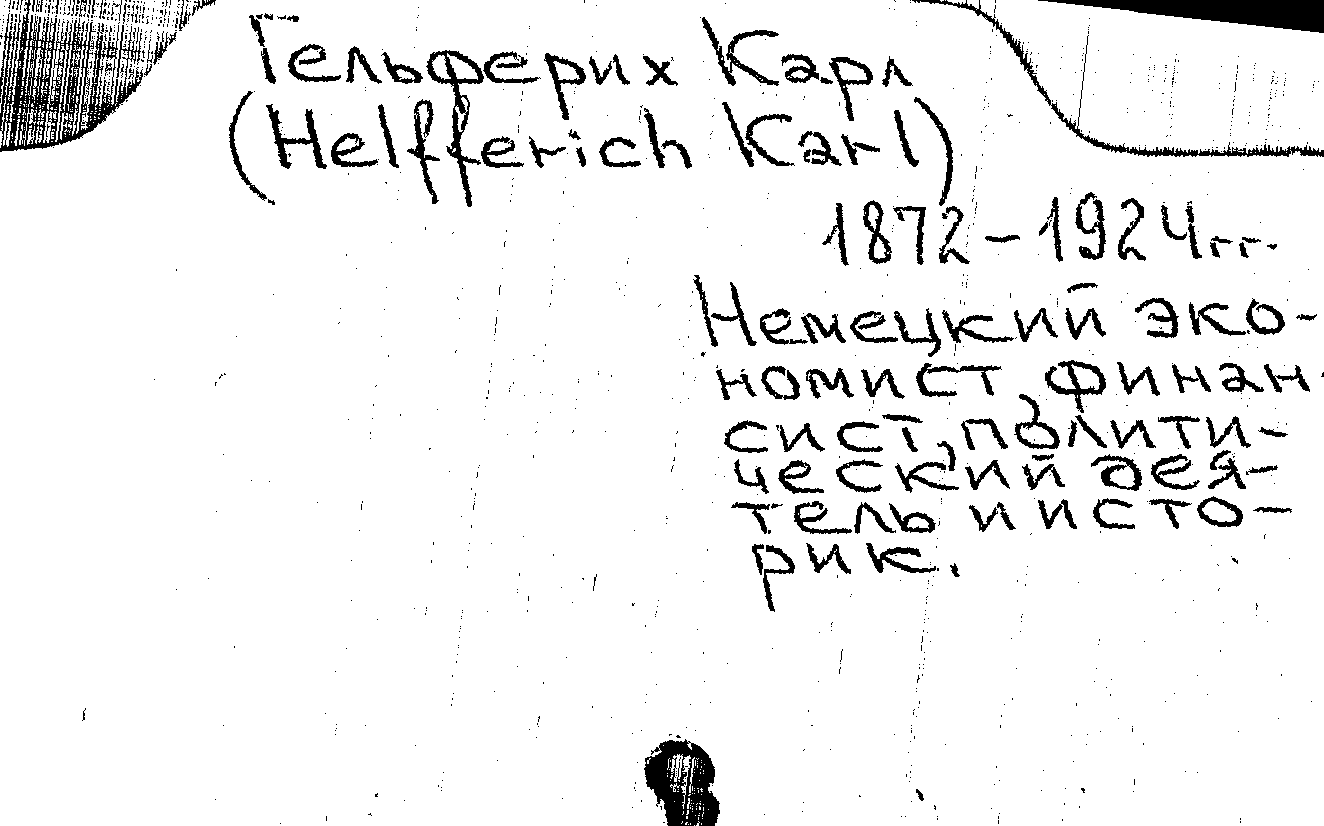 Гельферих Карл
(Helfferich Karl)
1872-1924гг.
Немецкий эко-
номист, финан-
сист, полити-
ческий дея-
тель и исто-
рик.